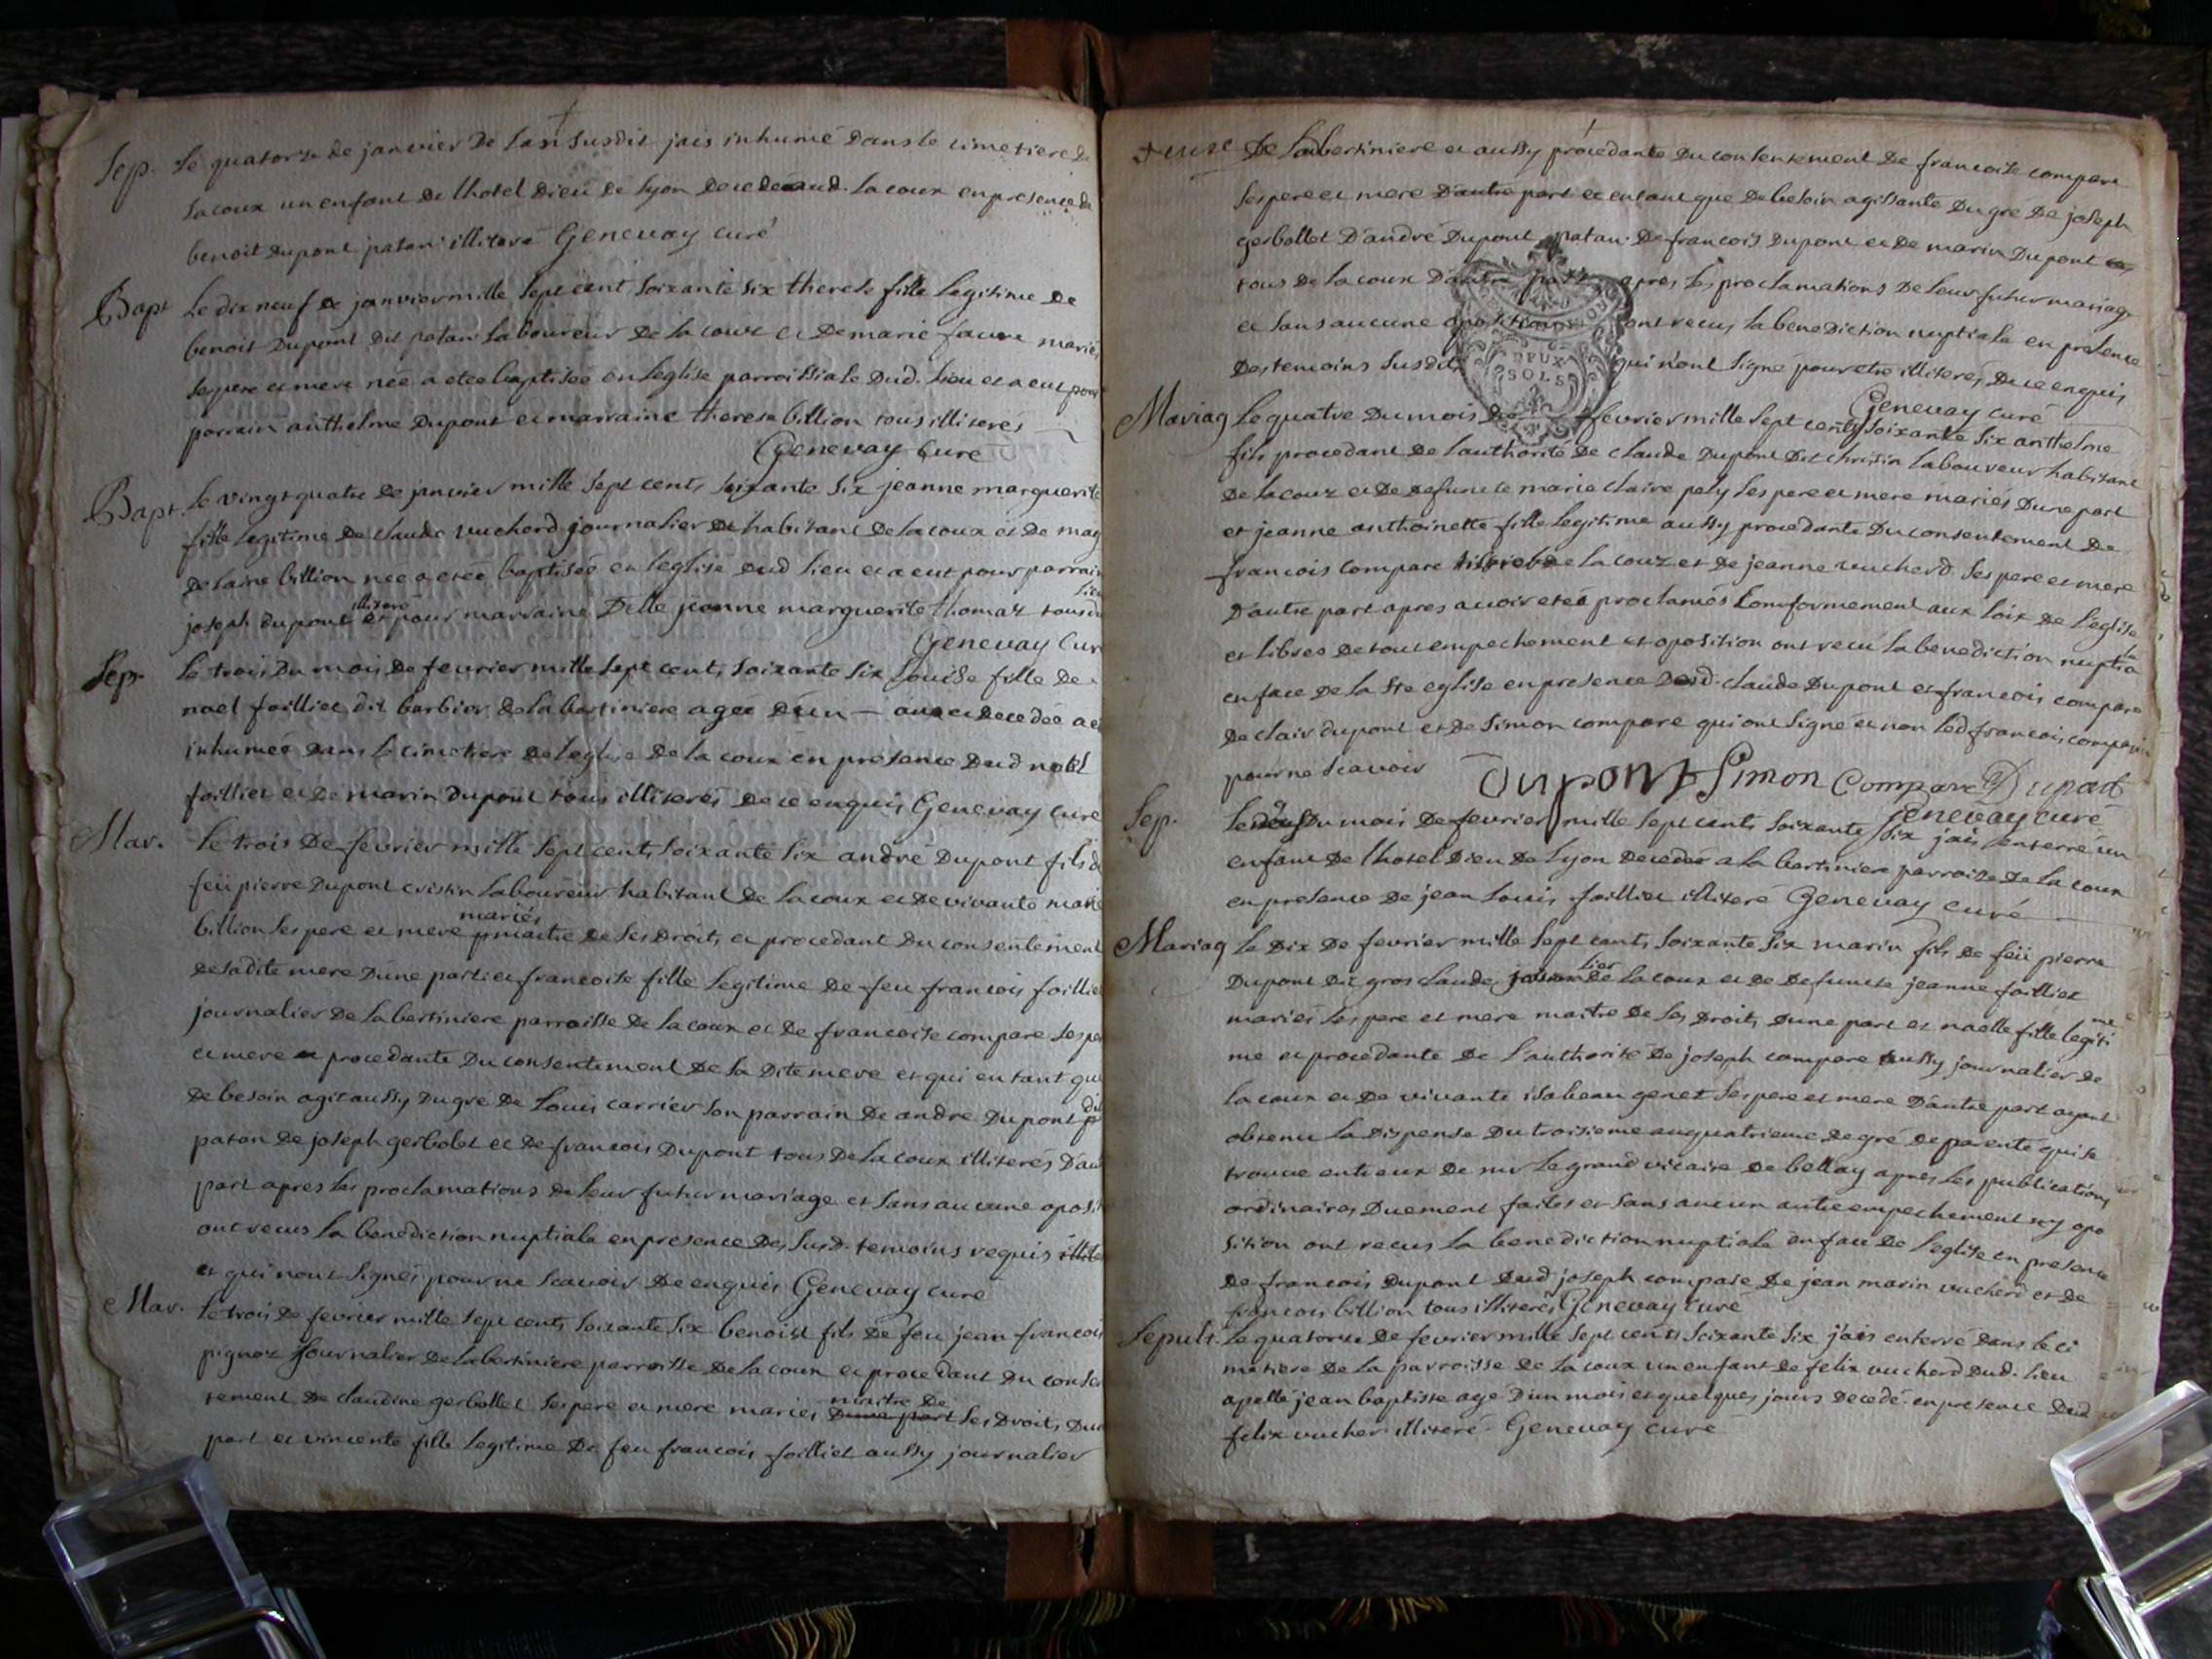 Sep. Le quatorze de janvier de lan susdit jais inhumé dans le cimetiere de
lacoux un enfant de lhotel dieu de lyon decedé aud. lacoux en presence de
benoit dupont patan illiteré Genevay curé
Bapt Le dix neuf de janvier mille sept cent soixante six therese fille legitime de
benoit dupont dit patan laboureur de la couz et de marie favre mariés
ses pere et mere née a eté baptisée en leglise parroissiale dud. lieu et a eut pour
parrain anthelme dupont et marraine therese billion tous illiterés
Genevay Curé
Bapt. Le vingt quatre de janvier mille sept cents soixante six jeanne marguerite
fille legitime de claude vucherd journalier et habitant de lacoux et de mag
delaine billion née a eté baptisée en leglise dud lieu et a eut pour parrain
joseph dupont illiteré et pour marraine Delle jeanne marguerite thomaz tous du lieu
Genevay Cur
Sep. Le trois du mois de fevrier mille sept cents soixante six Louise fille de
nael foilliet dit barbier de la bertiniere agée d'un — an et decedée a eté
inhumée dans le cimetiere de leglise de la coux en presence dud noel
foilliet et de marin dupont tous illiterés de ce enquis Genevay curé
Mar. Le trois de fevrier mille sept cents soixante six andré dupont fils de
feü pierre dupont cristin laboureur habitant de la coux et de vivante marie
billion ses pere et mere mariés maitre de ses droits et procedant du consentement
de sa dite mere d'une part et francoise fille legitime de feu francois foilliet
journalier de la bertiniere parroisse de la coux et de francoise compare ses pere
et mere procedante du consentement de la dite mere et qui en tant que
de besoin agit aussy du gré de Louis carrier son parrain de andre dupont dit
patan de joseph gerbolet et de francois dupont tous de la coux illiterés d'au
part apres les proclamations de leur futur mariage et sans aucune oposi
ont recus la benediction nuptiale en presence des susd. temoins requis illite
et qui nont signés pour ne scavoir de enquis Genevay curé
Mar. Le trois de fevrier mille sept cents soixante six benoist fils de feu jean francois
pignoz journalier de la bertiniere parroisse de la coux et procedant du consen
tement de claudine gerbollet ses pere et mere mariés maitre de d'une part ses droits d'une
part et vincente fille legitime de feu francois foilliet aussy journalier
de la bertiniere et aussy procedante du consentement de francoise compare
ses pere et mere d'autre part et en tant que de besoin agissante du gré de joseph
gerbollet d'andré dupont patan de francois dupont et de marin dupont
tous de la coux d'autre part apres les proclamations de leur futur mariage
et sans aucune oposition ont recus la benediction nuptiale en presence
des temoins susdits qui n'ont signé pour etre illiterés de ce enquis
DEUX
SOLS
Genevay curé
Mariag Le quatre du mois de fevrier mille sept cents soixante six anthelme
fils procedant de l'authorité de claude dupont dit christin laboureur habitant
de lacouz et de defuncte marie claire pely ses pere et mere mariés d'une part
et jeanne anthoinette fille legitime aussy procedante du consentement de
francois compare de la couz et de jeanne vucherd ses pere et mere
d'autre part apres avoir eté proclamés conformement aux loix de l'eglise
et libres de tout empechement et oposition ont recu la benediction nuptia le
en face de la ste eglise en presence dud. claude dupont et francois compare
de clair dupont et de simon compare qui ont signé et non led francois compare
pour ne scavoir Dupont Simon Compare Dupont
Genevay curé
Sep. Le du mois de fevrier mille sept cents soixante six jais enterré un
enfant de lhotel dieu de lyon decedé a la bertiniere parroise de la coux
en presence de jean louis foilliet illiteré Genevay curé
Mariag Le dix de fevrier mille sept cents soixante six marin fils de feü pierre
dupont dit gros claude journalier de la coux et de defuncte jeanne foilliet
mariés ses pere et mere maitre de ses droits d'une part et naelle fille legiti
me et procedante de l'authorité de joseph compare aussy journalier de
la coux et de vivante isabeau genet ses pere et mere d'autre part ayant
obtenu la dispense du troisieme au quatrieme degré de parenté qui se
trouve entr eux de mr le grand vicaire de bellay apres les publications
ordinaires duement faites et sans aucun autre empechement ny opo
sition ont recus la benediction nuptiale en face de l'eglise en presence
de francois dupont dud joseph compare de jean marin vucherd et de
francois billion tous illiterés Genevay curé
Sepult. Le quatorze de fevrier mille sept cents soixante six jais enterré dans le ci
metiere de la parroisse de la coux un enfant de felix vucherd dud. lieu
apellé jean baptiste agé d'un mois et quelques jours decedé. en presence dud
felix vucher illiteré. Genevay curé